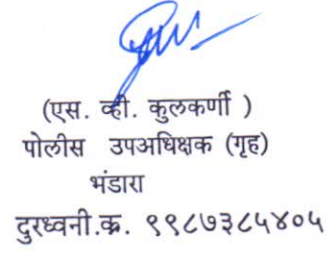 (एस. व्ही. कुलकर्णी )
पोलीस उपअधिक्षक (गृह)
भंडारा
दुरध्वनी.क्र. ९९८७३८५४०५